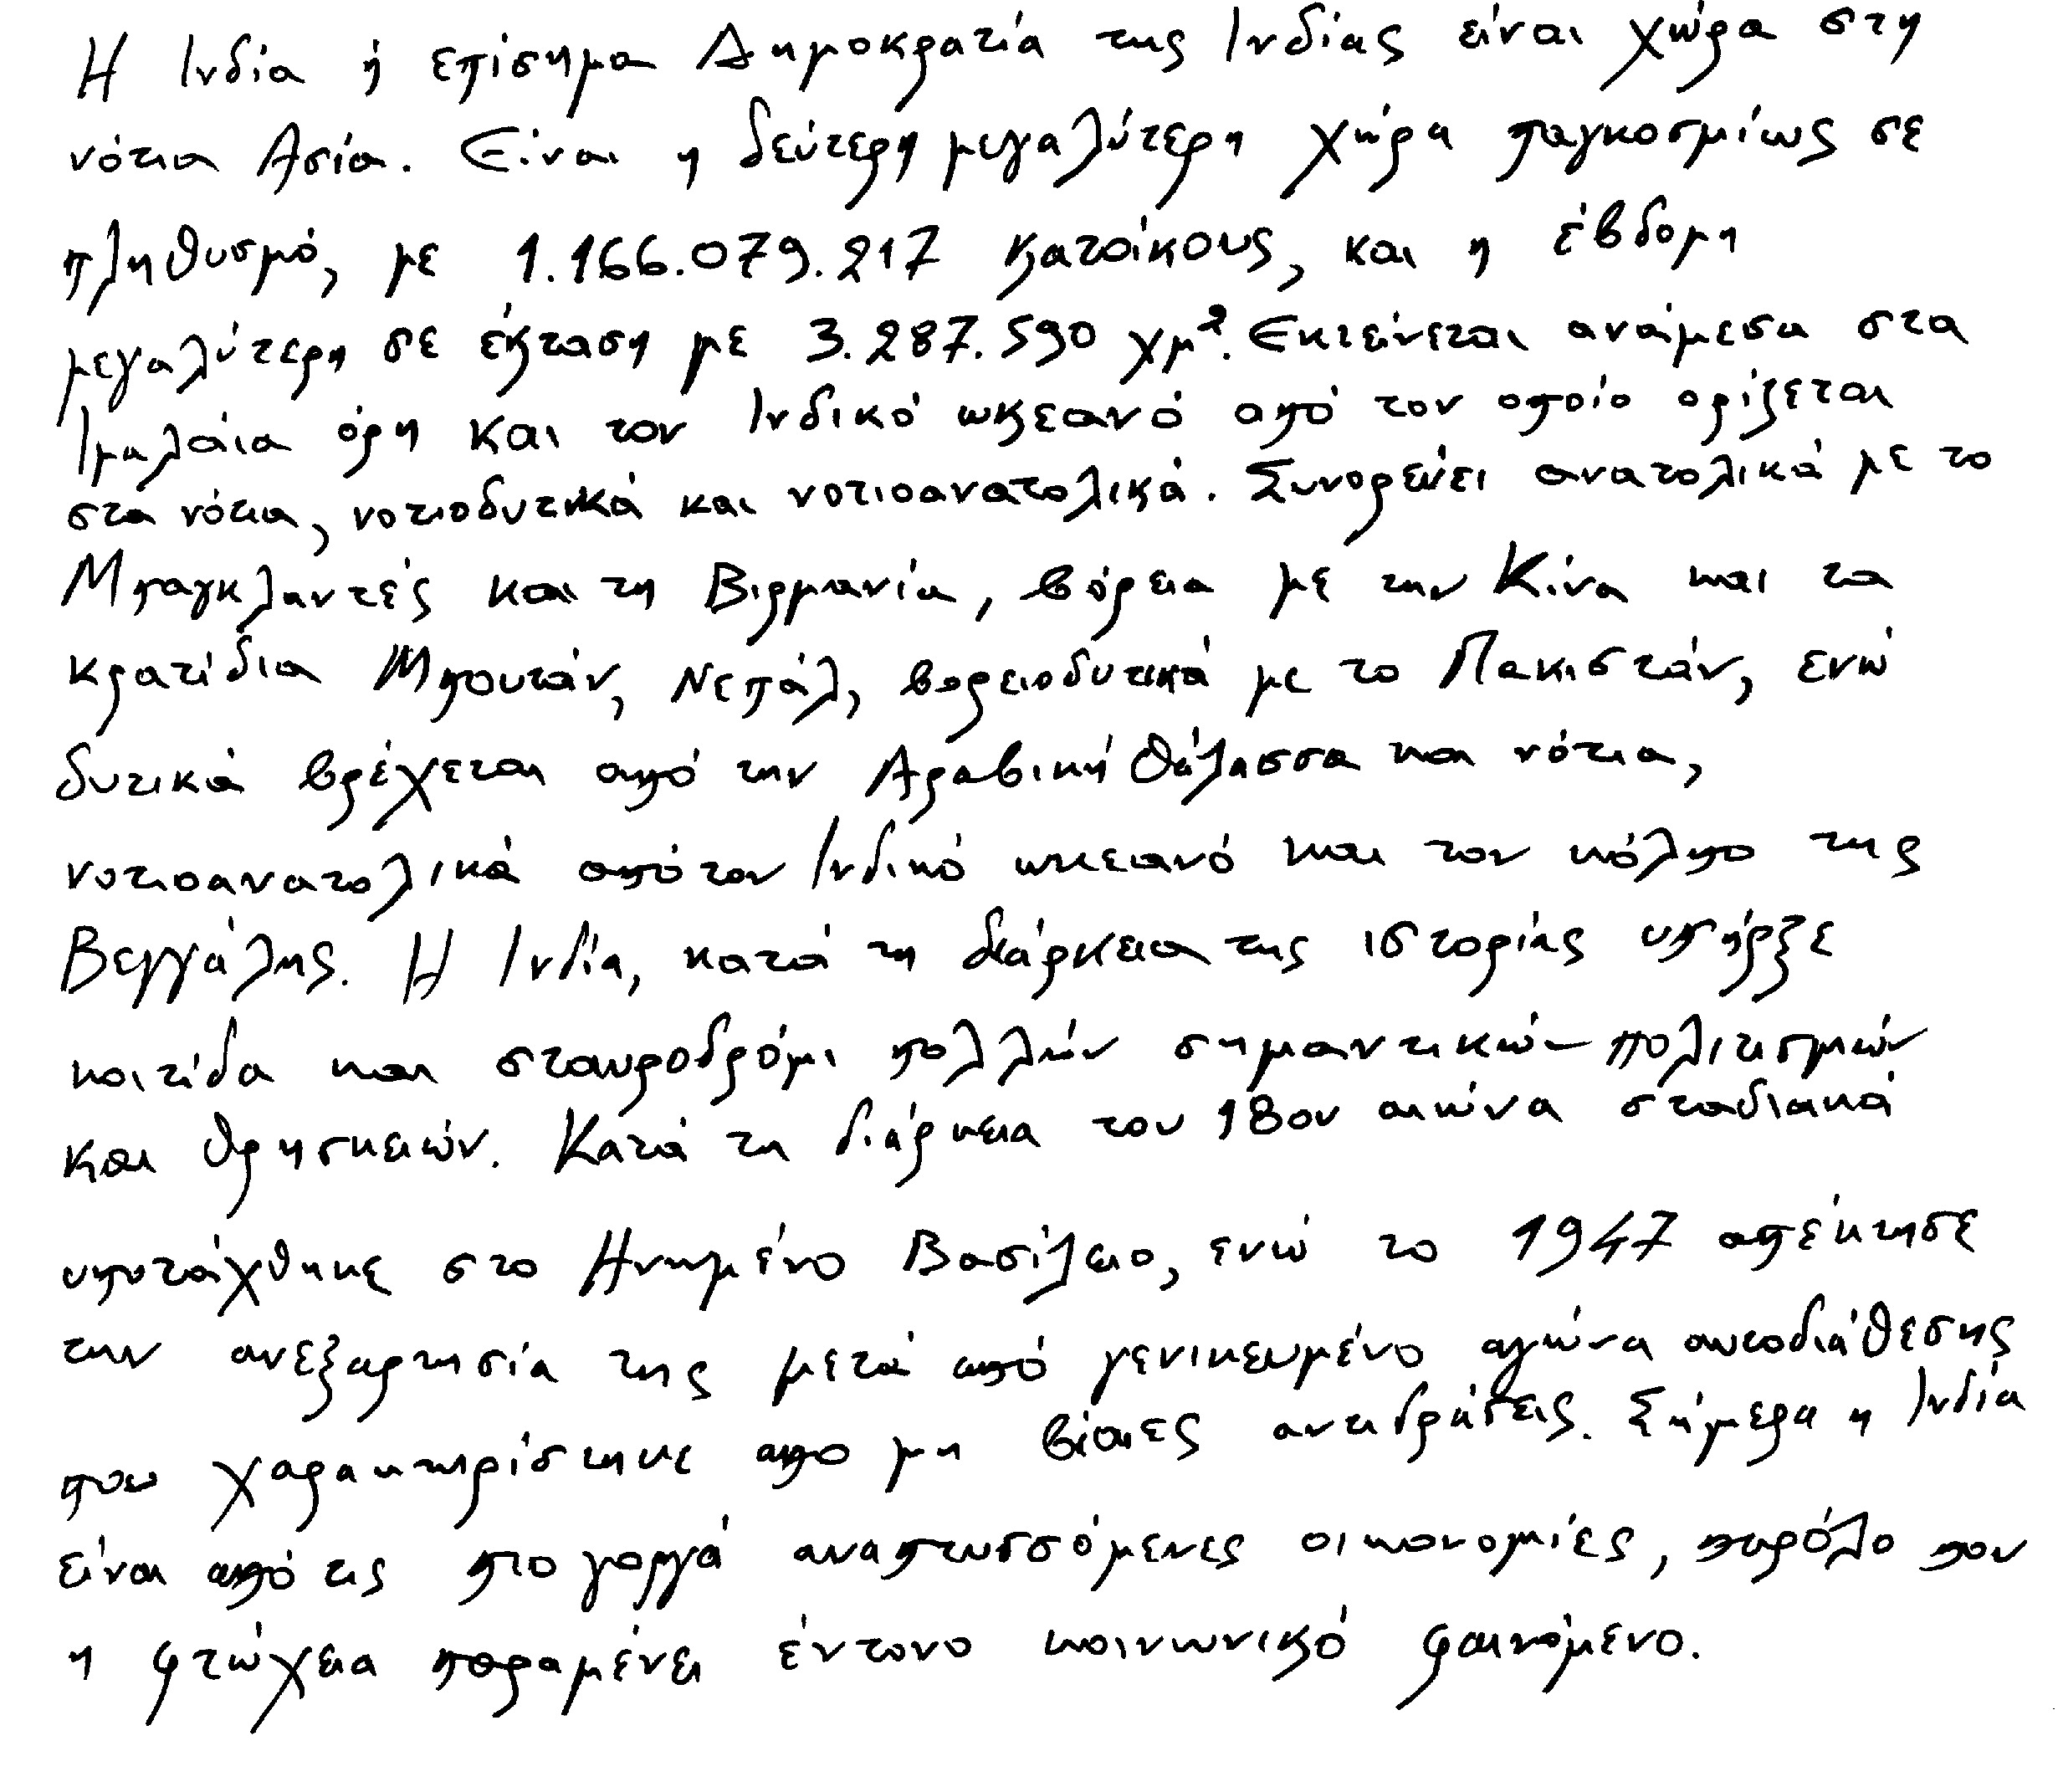 Η Ινδία ή επίσημα Δημοκρατία της Ινδίας είναι χώρα στη
νότια Ασία. Είναι η δεύτερη μεγαλύτερη χώρα παγκοσμίως σε
πληθυσμό, με 1.166.079.217 κατοίκους, και η έβδομη
μεγαλύτερη σε έκταση με 3.287.590 χμ². Εκτείνεται ανάμεσα στα
Ιμαλάια όρη και τον Ινδικό ωκεανό από τον οποίο ορίζεται
στα νότια, νοτιοδυτικά και νοτιοανατολικά. Συνορεύει ανατολικά με το
Μπαγκλαντές και τη Βιρμανία, βόρεια με την Κίνα και τα
κρατίδια Μπουτάν, Νεπάλ, βορειοδυτικά με το Πακιστάν, ενώ
δυτικά βρέχεται από την Αραβική θάλασσα και νότια,
νοτιοανατολικά από τον Ινδικό ωκεανό και τον κόλπο της
Βεγγάλης. Η Ινδία, κατά τη διάρκεια της ιστορίας υπήρξε
κοιτίδα και σταυροδρόμι πολλών σημαντικών πολιτισμών
και θρησκειών. Κατά τη διάρκεια του 18ου αιώνα σταδιακά
υποτάχθηκε στο Ηνωμένο Βασίλειο, ενώ το 1947 απέκτησε
την ανεξαρτησία της μετά από γενικευμένο αγώνα αυτοδιάθεσης
που χαρακτηρίστηκε απο μη βίαιες αντιδράσεις. Σήμερα η Ινδία
είναι από τις πιο γοργά αναπτυσσόμενες οικονομίες, παρόλο που
η φτώχεια παραμένει έντονο κοινωνικό φαινόμενο.